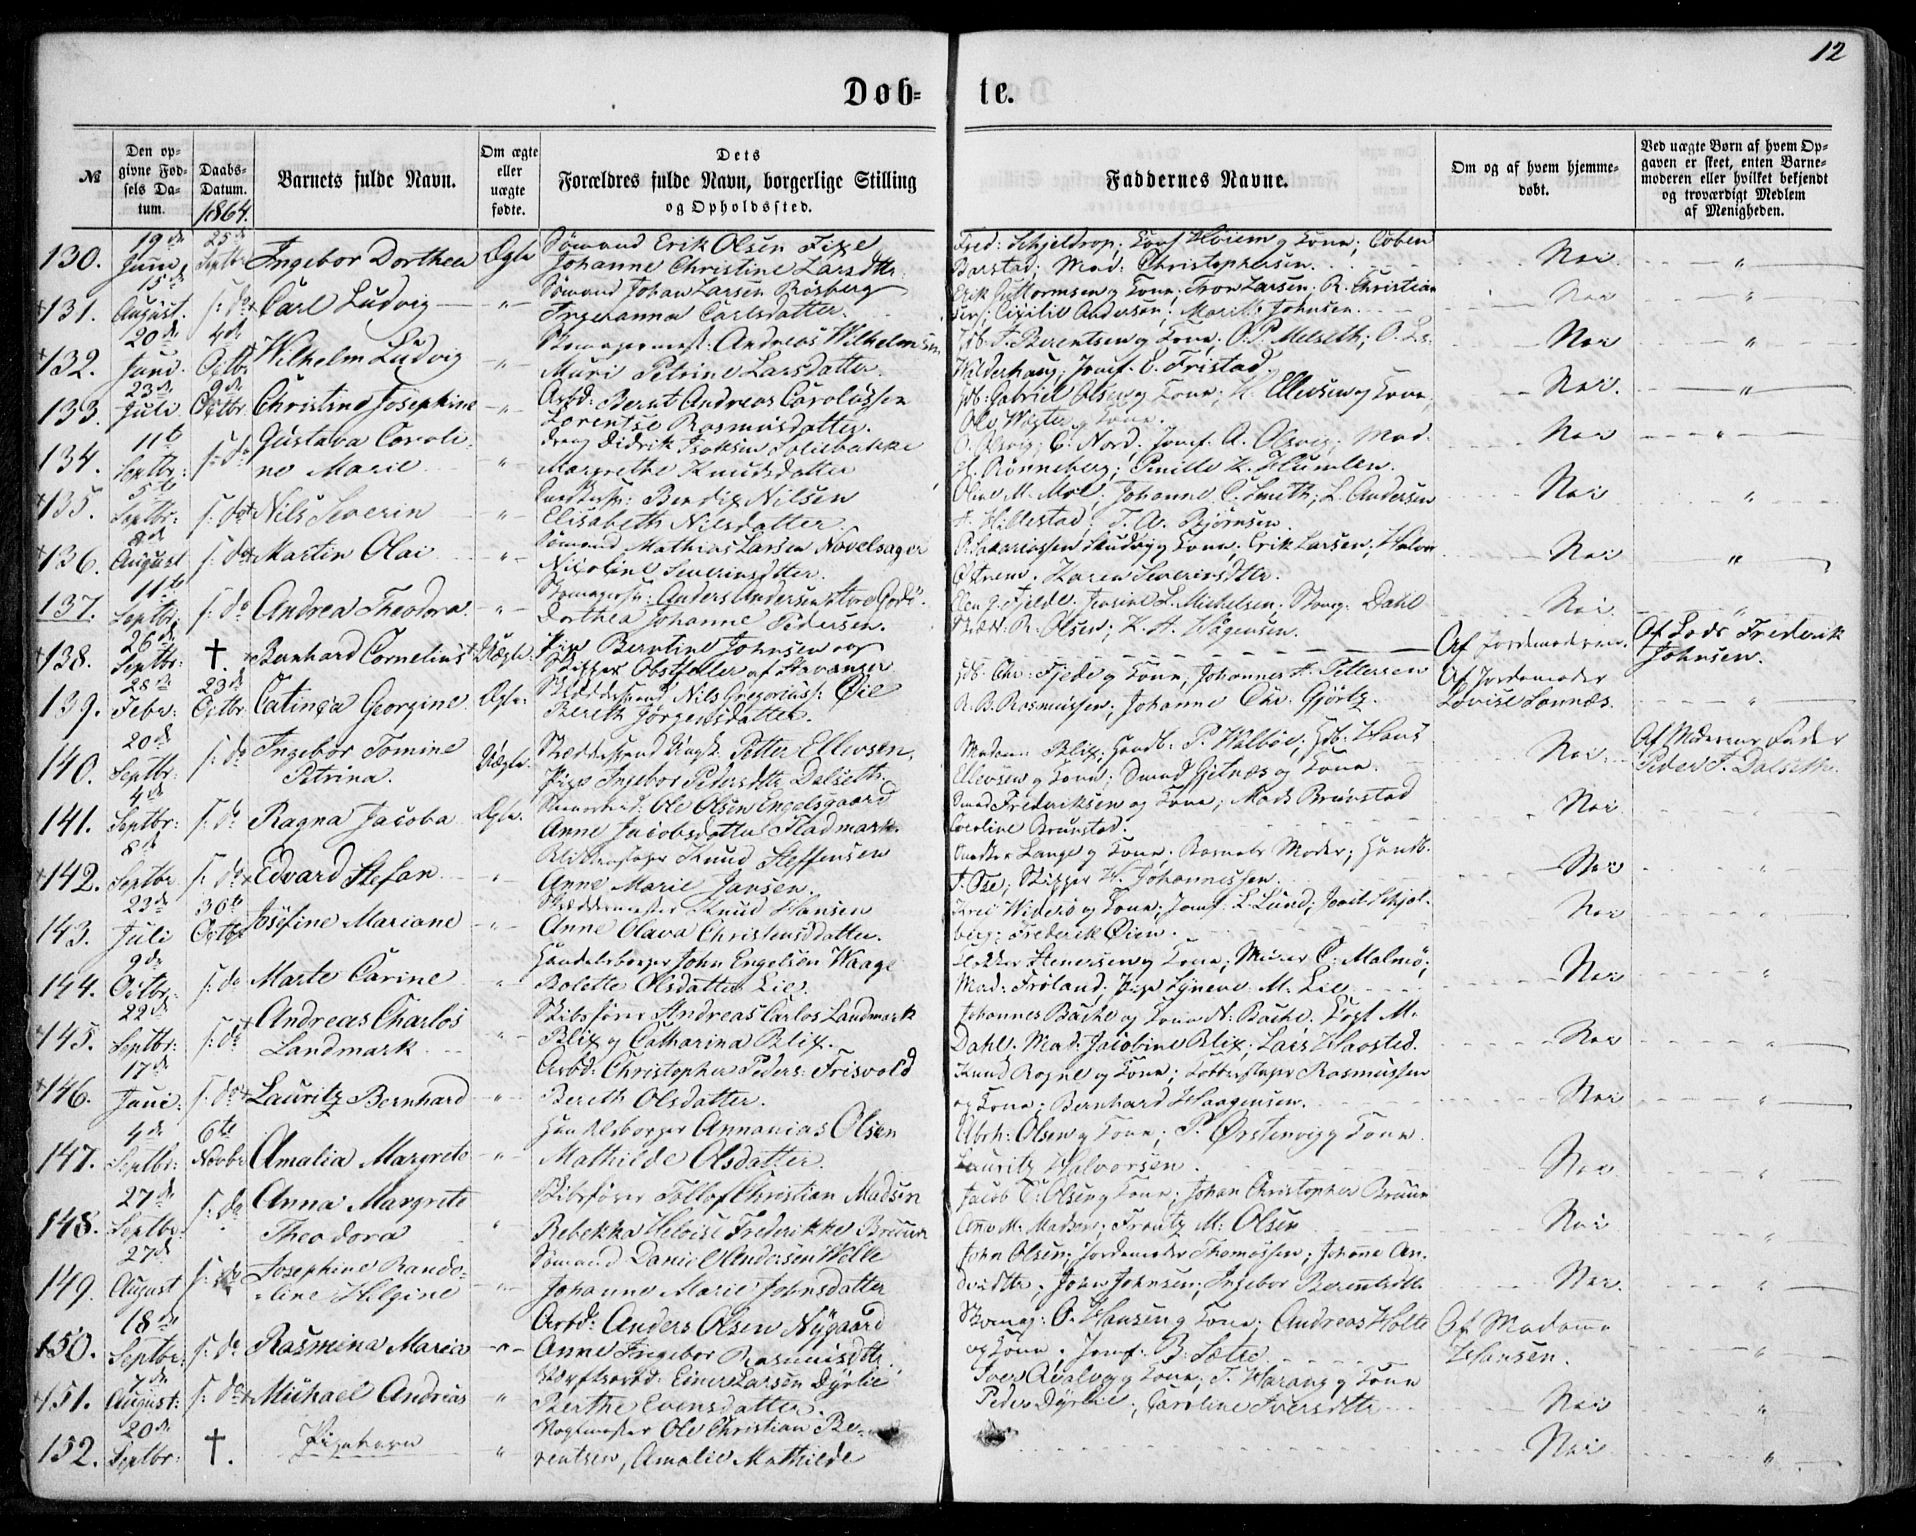 12
Døb-te.
№
Den opgivne Fødsels Datum.
Daabs-Datum. 1864.
Barnets fulde Navn.
Om ægte eller uægte fødte.
Dets Forældres fulde Navn, borgerlige Stilling og Opholdssted.
Faddernes Navne.
Om og af hvem hjemmedøbt.
Ved uægte Børn af hvem Opgaven er skeet, enten Barnemoderen eller hvilket bekjendt og troværdigt Medlem af Menigheden.
130. 19de Juni 25de Septbr Ingebor Dorthea Ægte Sømand Erik Olsen Fixe
Johanne Christine Larsdtr. Fred: Schjeldrop; Kone; Coben
Barstad; Mad: Christophersen. Nei "
131. 15de August. s: do Carl Ludvig " Sømand Johan Larsen Røsberg
Ingeranna Carlsdatter. Erik Guttormsen og Kone; Iver Larsen; R. Christian
sen; Cicilie Andersen; Marith Johnsen. Nei "
132. 20de Juni. 4de Octbr Wilhelm Ludvig " Andreas Wilhelmsen
Muri Petrine Larsdatter. J. Berentsen og Kone; O. P. Melseth; O. Ls.
Walderhaug; Jomf. C. Fristad. Nei "
133. 23de Juli 9de Octbr. Christine Josephine " Arbd: Bernt Andreas Carolussen
Lorentse Rasmusdatter. Gdb: Gabriel Olsen og Kone; H. Ellevsen og Kone,
Kone. Nei. "
134. 11te Septbr: s: do Gustava Caroli-
ne Marie " Didrik
Margrethe Knudsdatter O. Olsvig; C. Nord; Jomf. A. Olsvig; Mad:
H. Rønneberg; Pernille K. Humlen. Nei "
135. 5te Septbr: s: do Nils Severin " Bendix Nilsen
Elisabeth Nilsdatter. Oline M. Moe; Johanne C. Smith; L. Andersen
Hillestad; T. A. Bjørnsen. Nei "
136. 8de August s: do Martin Olai " Sømand Mathias Larsen Novelsager
Nicoline Severinsdtter. og Kone; Erik Larsen; Halvor
Østrem. Karen Severinsdtr. Nei "
137. 11te Septbr. s: do Andrea Theodora. " Skomagersv: Anders Andersen Store Godø.
Dorthea Johanne Pedersen. Elen J. Fjelde; Jensine L. Michelsen; Skomg: Dahl
R. Olsen; K. A. Hagensen. Nei "
138. 26de Septbr: †. Bernhard Cornelius Uægte Pige Berntine Johnsen og
Skipper Obstfelder af Stavanger Af Jordemoderen. Af Lods Frederik
Johnsen.
139. 28de Febr: 23de Octbr Catinca Georgine Ægte. Nils Gregoriuss: Øie
Bereth Jørgensdatter. Gdb. Chr: Fjede og Kone, Johannes H. Pettersen
R. B. Rasmussen; Johanne Chr. Gjørtz. Af Jordemoder
Lovise Lonnæs. "
140. 20de Septbr: s: do Ingebor Tomine
Petrina. Uægte. Petter Ellevsen,
Pige Ingebor Pedersdtr Dalseth. Madam Blix; Handb: P. Walbøe; Gdb: Hans
Ellevsen og Kone; Smed Gjetnæs og Kone. Nei. Af Moderens Fader
Peder T. Dalseth.
141. 4de Septbr: s: do Ragna Jacoba Ægte. Ole Olsen Engelsgaard
Anne Jacobsdatter Fladmark. Smed Frederiksen og Kone; Mads Brunstad
Caroline Brunstad. Nei "
142. 8de Septbr s: do Edvard Stefan " Knud Steffensen
Anne Marie Jansen. Snedker Lange og Kone; Barnets Moder; Handb.
J. Ose, Skipper H. Johannessen. Nei "
143. 23de Juli 30te Octbr Josefine Mariane " Skræddermester Knud Hansen
Anne Olava Christensdatter. Widerø og Kone; Jomf: L. Lund; Schjel-
berg; Frederik Øien. Nei "
144. 9de Octbr: s: do Marte Carine " Handelsborger John Engelsen Waage
Bolette Olsdatter Lie. Stenersen og Kone; Murer C: Malmø;
Mad: Frøland; Pige Synneve M. Lie Nei "
145. 22de Septbr: s: do Andreas Charlos
Landmark " Skibsfører Andreas Carlos Landmark
Blix og Catharina Blix. Johannes Backe og Kone N. Backe; M.
Dahl. Mad. Jacobine Blix; Lars Haastad. Nei "
146. 17de Juni: s: do Lauritz Bernhard " Arbd: Christopher Peders: Frisvold
Bereth Olsdatter. Knud Rogne og Kone; Rasmussen
og Kone; Bernhard Haagensen. Nei "
147. 4de Septbr: 6te Novbr Amalia Margrete " Handelsborger Annanias Olsen
Mathilde Olsdatter. Abrh: Olsen og Kone; P. Ørstenvig og Kone
Lauritz Halvorsen. Nei "
148. 27de Septbr s: do Anna Margrete
Theodora " Skibsfører Tollof Christian Madsen
Rebekka Heloise Frederikke Bruun Jacob C: Olsen og Kone; Johan Christopher Bruun
Anne M. Madsen; Frantz M. Olsen Nei "
149. 27de August s: do Josephine Rando-
line Helgine " Sømand Daniel Andersen Welle
Johanne Marie Johnsdatter John Olsen; Jordemoder Thomassen; Johanne An-
dreasdtr. John Johnsen; Ingebor Berentsdtr Nei. "
150. 18de Septbr: s: do Rasmina Maria " Arbd: Anders Olsen Nygaard
Anne Ingebor Rasmusdtr. Skomag: O. Hansen og Kone; Andreas Holte
og Kone. Jomf: B. Sætre Af Madame
Hansen.
151. 7de August: s: do Michael Andreas " Værftsarbd: Einer Larsen Dyrlie
Berthe Evensdatter. Iver og Kone; T. Harang og Kone
Peder Dyrlie; Caroline Iversdtr Nei "
152. 20de Septbr: †. Pigebarn " Vognmester Ole Christian Be-
rentsen, Amalie Mathilde Nei "